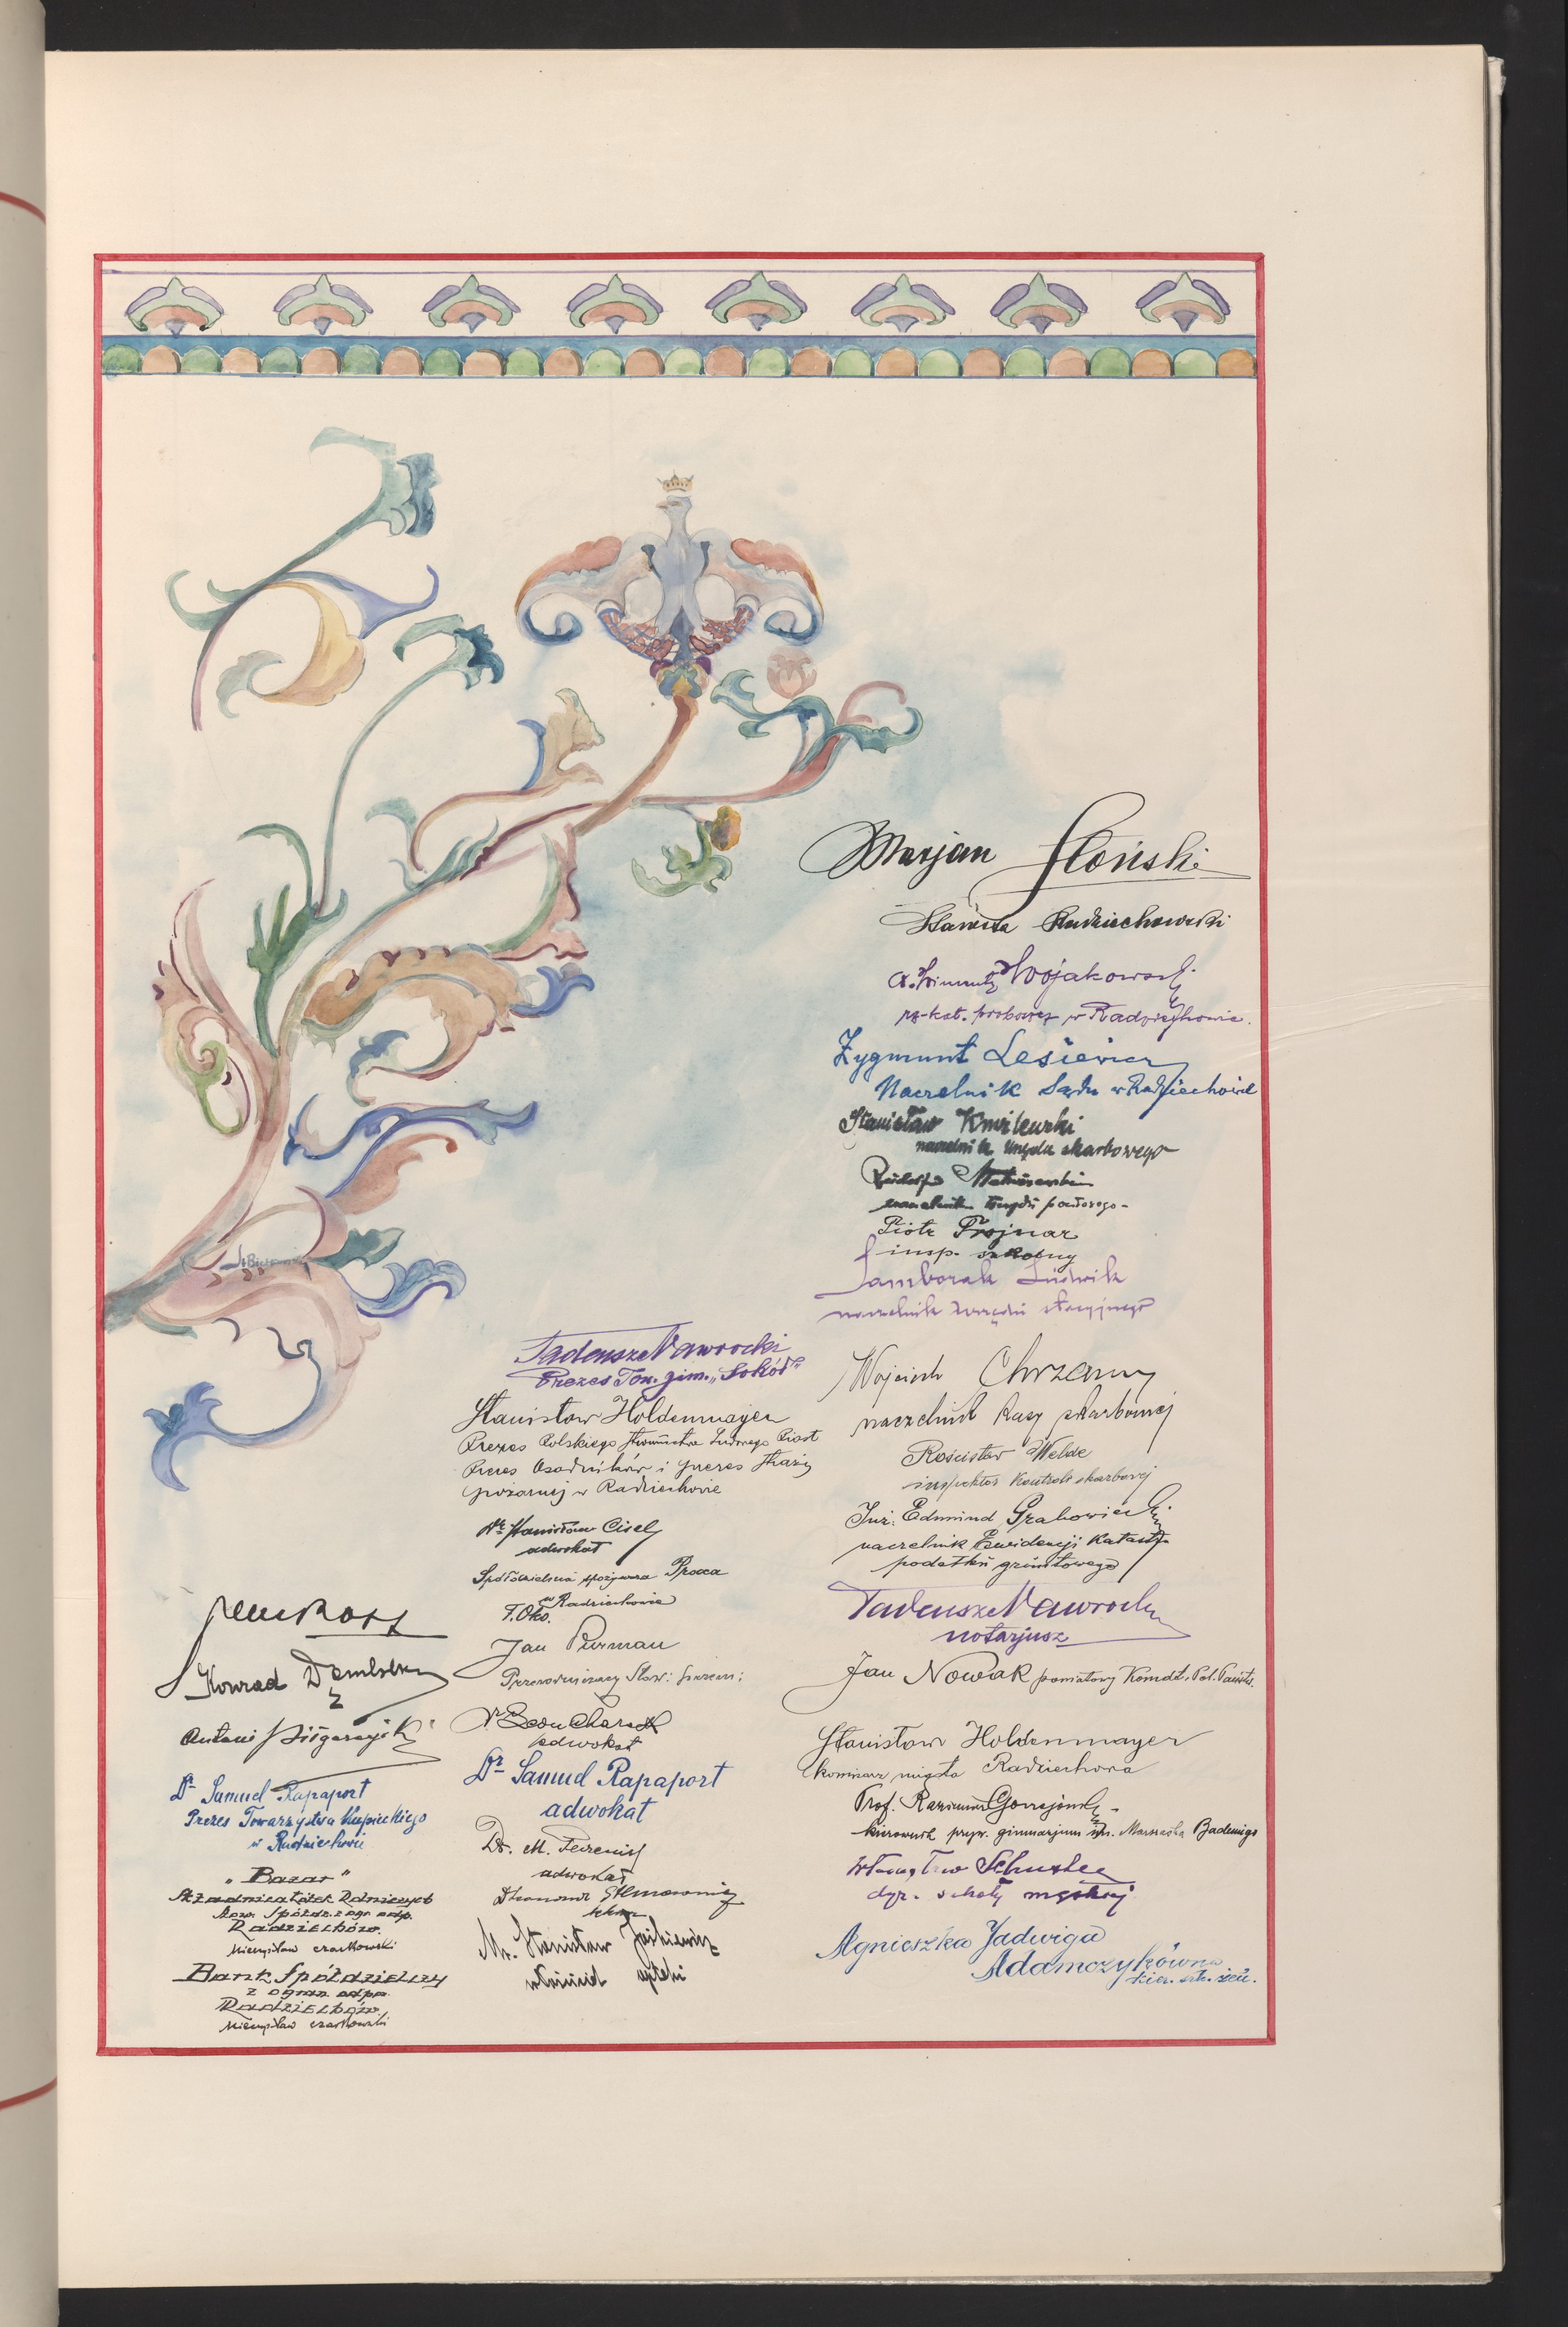 Marjan Słoński
Radziechowski
Wojakowski
rz-kat. proboszcz w Radziechowie.
Zygmunt Lesiewicz
Naczelnik Sądu w Radziechowie
Stanisław Kmilewski
naczelnik Urzędu skarbowego
naczelnik Urzędu
Piotr Trojnar
insp. szkolny
Samborak Ludwik
naczelnik urzędu stacyjnego
Wojciech Chrzanny
naczelnik Kasy skarbowej
Rościsław Welde
inspektor Kontroli skarbowej
Inż. Edmund Grabowiecki
naczelnik Ewidencji Katastru
podatku gruntowego
Tadeusz Nawrocki
notarjusz
Jan Nowak powiatowy Komdt. Pol. Państw.
Stanisław Holdenmayer
komisarz miasta Radziechowa
Prof. Kazimierz
kierownik pryw. gimnazjum im. Marszałka Badeniego
Schuster
dyr. szkoły męskiej
Agnieszka Jadwiga
Adamczykówna
kier. szk. żeń.
Tadeusz Nawrocki
Prezes Tow. gim. „Sokół"
Stanisław Holdenmayer
Prezes Polskiego Stronnictwa Ludowego Piast
Prezes Osadników i prezes Straży
pożarnej w Radziechowie
Dr Stanisław Cisely
adwokat
Spółdzielnia spożywcza Praca
w Radziechowie
T. Oko.
Jan Purman
Przewodniczący Stow:
Dr Leon
adwokat
Dr Samuel Rapaport
adwokat
Dr. M.
adwokat
Mr. Stanisław Jaśkiewicz
właściciel apteki
Konrad
Antoni
Dr Samuel Rapaport
Prezes Towarzystwa Kupieckiego
w Radziechowie
„Bazar"
Składnica Kółek Rolniczych
Stow. Spółdz. z ogr. odp.
Radziechów.
Mieczysław Czarkowski
Bank Spółdzielczy
z ogran. odpo.
Radziechów.
Mieczysław Czarkowski